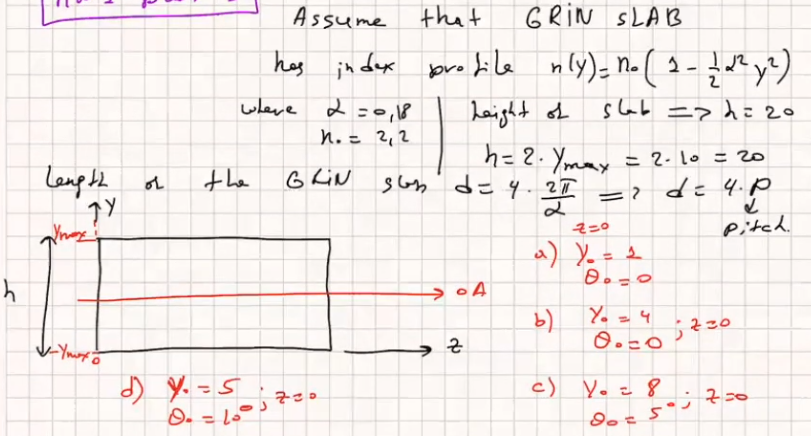 Assume that GRIN SLAB
has index profile n(y)=n₀(1-½α²y²)
where α=0,18
n₀=2,2
height of slab => h=20
h=2·Ymax=2·10=20
Length of the GRIN slab d=4·2π/α => d=4·P
pitch.
Y
Ymax
h
-Ymax
0
OA
Z
z=0
a) Y₀=1
θ₀=0
b) Y₀=4 ; z=0
θ₀=0
c) Y₀=8 ; z=0
θ₀=5°
d) Y₀=5 ; z=0
θ₀=10°